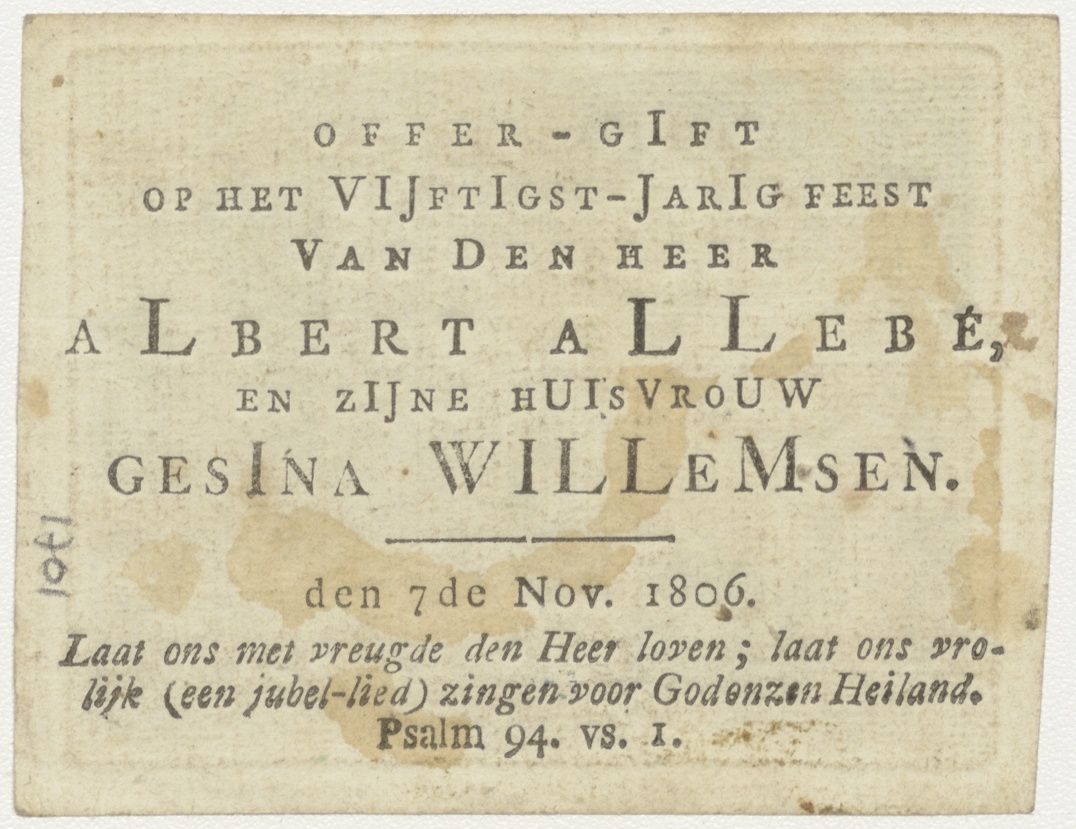 OFFER-GIFT
OP HET VIJFTIGST-JARIG FEEST
VAN DEN HEER
ALBERT ALLEBÉ,
EN ZIJNE HUISVROUW
GESINA WILLEMSEN.
den 7de Nov. 1806.
Laat ons met vreugde den Heer loven; laat ons vro-
lijk (een jubel-lied) zingen voor God onzen Heiland.
Psalm 94. vs. 1.